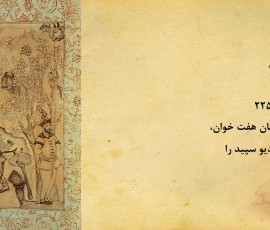 ۲۲۵
هفت خوان،
دیو سپید را